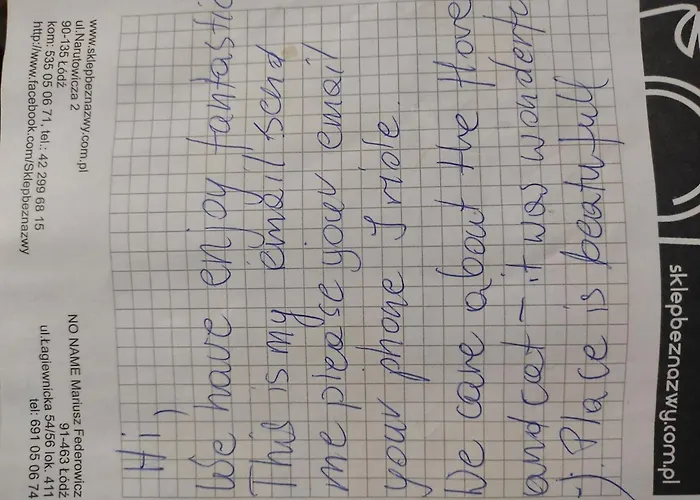 Hi,
We have enjoy fantastic
This is my email send
me please your email
your phone I
We care about the
and cat - it was wonderfu
:) Place is beatufull
sklepbeznazwy.com.pl
www.sklepbeznazwy.com.pl
ul.Narutowicza 2
90-135 Łódź
kom: 535 05 06 71, tel.: 42 299 68 15
http://www.facebook.com/Sklepbeznazwy
NO NAME Mariusz Federowicz
91-463 Łódź
ul.Łagiewnicka 54/56 lok. 411
tel: 691 05 06 74